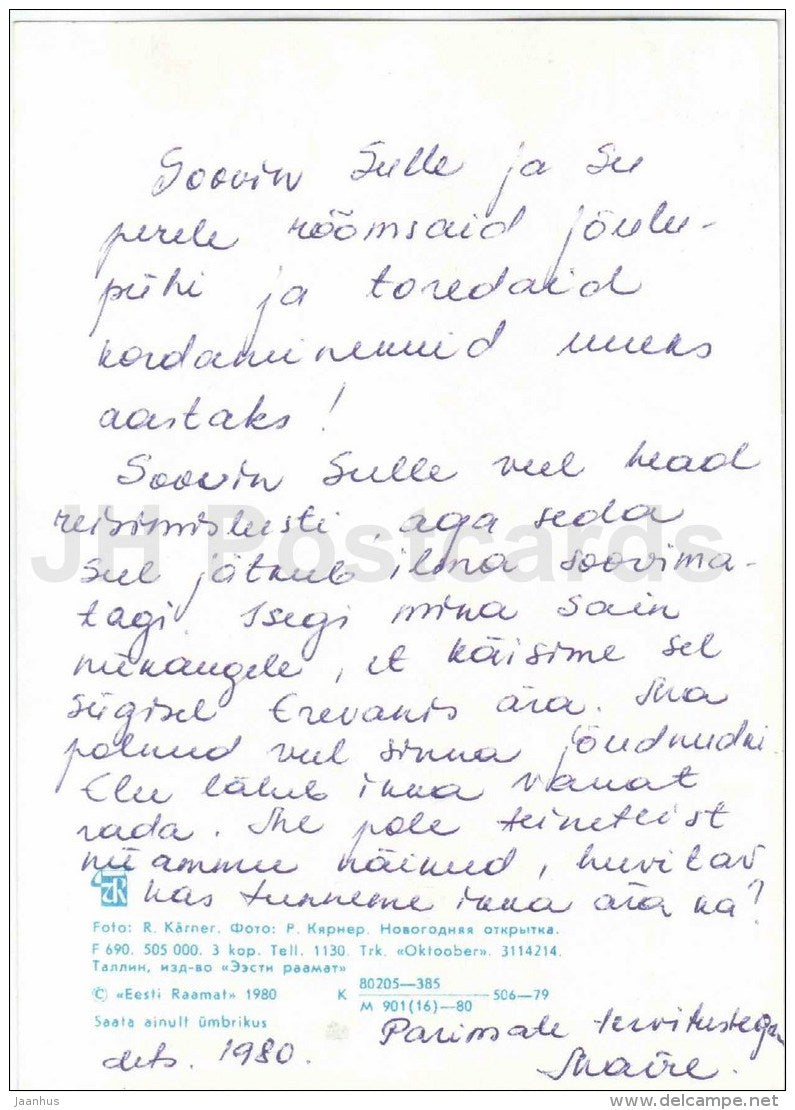 Soovin Sulle ja Su
perele rõõmsaid jõulu-
pühi ja toredaid
kordaminekuid uueks
aastaks!
Soovin Sulle veel head
reisimislusti, aga seda
Sul jätkub ilma soovima-
tagi. Isegi mina sain
niikaugele, et käisime sel
sügisel Erevanis ära. Ma
polnud veel sinna jõudnudki.
Elu läheb ikka vanat
rada. Me pole teineteist
nii ammu näinud, huvitav
kas tunneme ikka ära ka?
Foto: R. Kärner. Фото: Р. Кярнер. Новогодняя открытка.
F 690. 505 000. 3 kop. Tell. 1130. Trk. «Oktoober». 3114214.
Таллин, изд-во «Ээсти раамат»
© «Eesti Raamat» 1980 К 80205—385 / М 901(16)—80 506—79
Saata ainult ümbrikus
Parimate tervitustega
dets. 1980. Maire.
JH Postcards
Jaanhus
www.delcampe.net